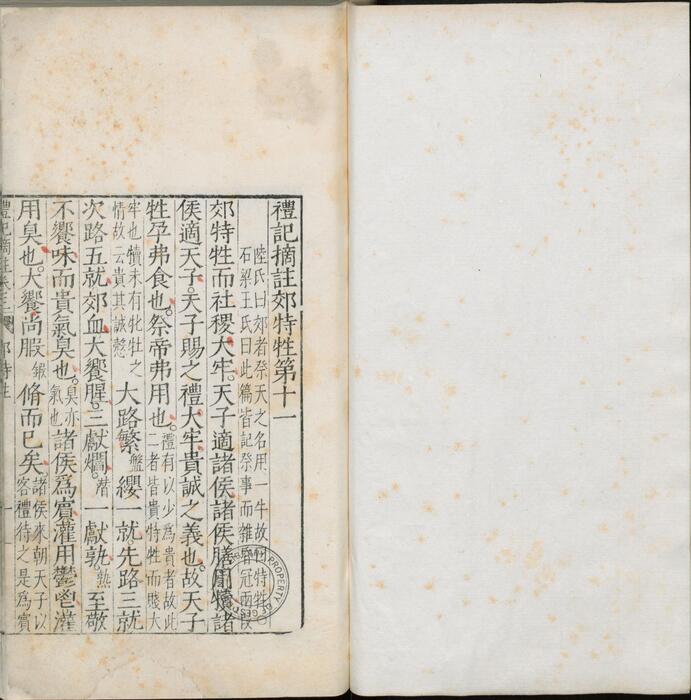 禮記摘註郊特牲第十一
陸氏曰郊者祭天之名用一牛故特牲
石梁王氏曰此篇皆記祭事而雜昏冠兩段
郊特牲而社稷大牢。天子適諸侯諸侯膳用犢諸
侯適天子。天子賜之禮大牢貴誠之義也。故天子
牲孕弗食也。祭帝弗用也。禮有以少爲貴者故此
二者皆貴特牲而賤大
牢也犢未有牝牡之
情故云貴其誠慤
大路繁鑿纓一就。先路三就
次路五就。郊血大饗腥。三獻爓。潛一獻孰。九熱至敬
不饗味而貴氣臭也。臭亦
氣也
諸侯爲賓灌用鬱鬯灌
用臭也。大饗尚腶鍛脩而已矣。諸侯來朝天子以
客禮待之是爲賓
禮記摘註卷三 郊特牲 一